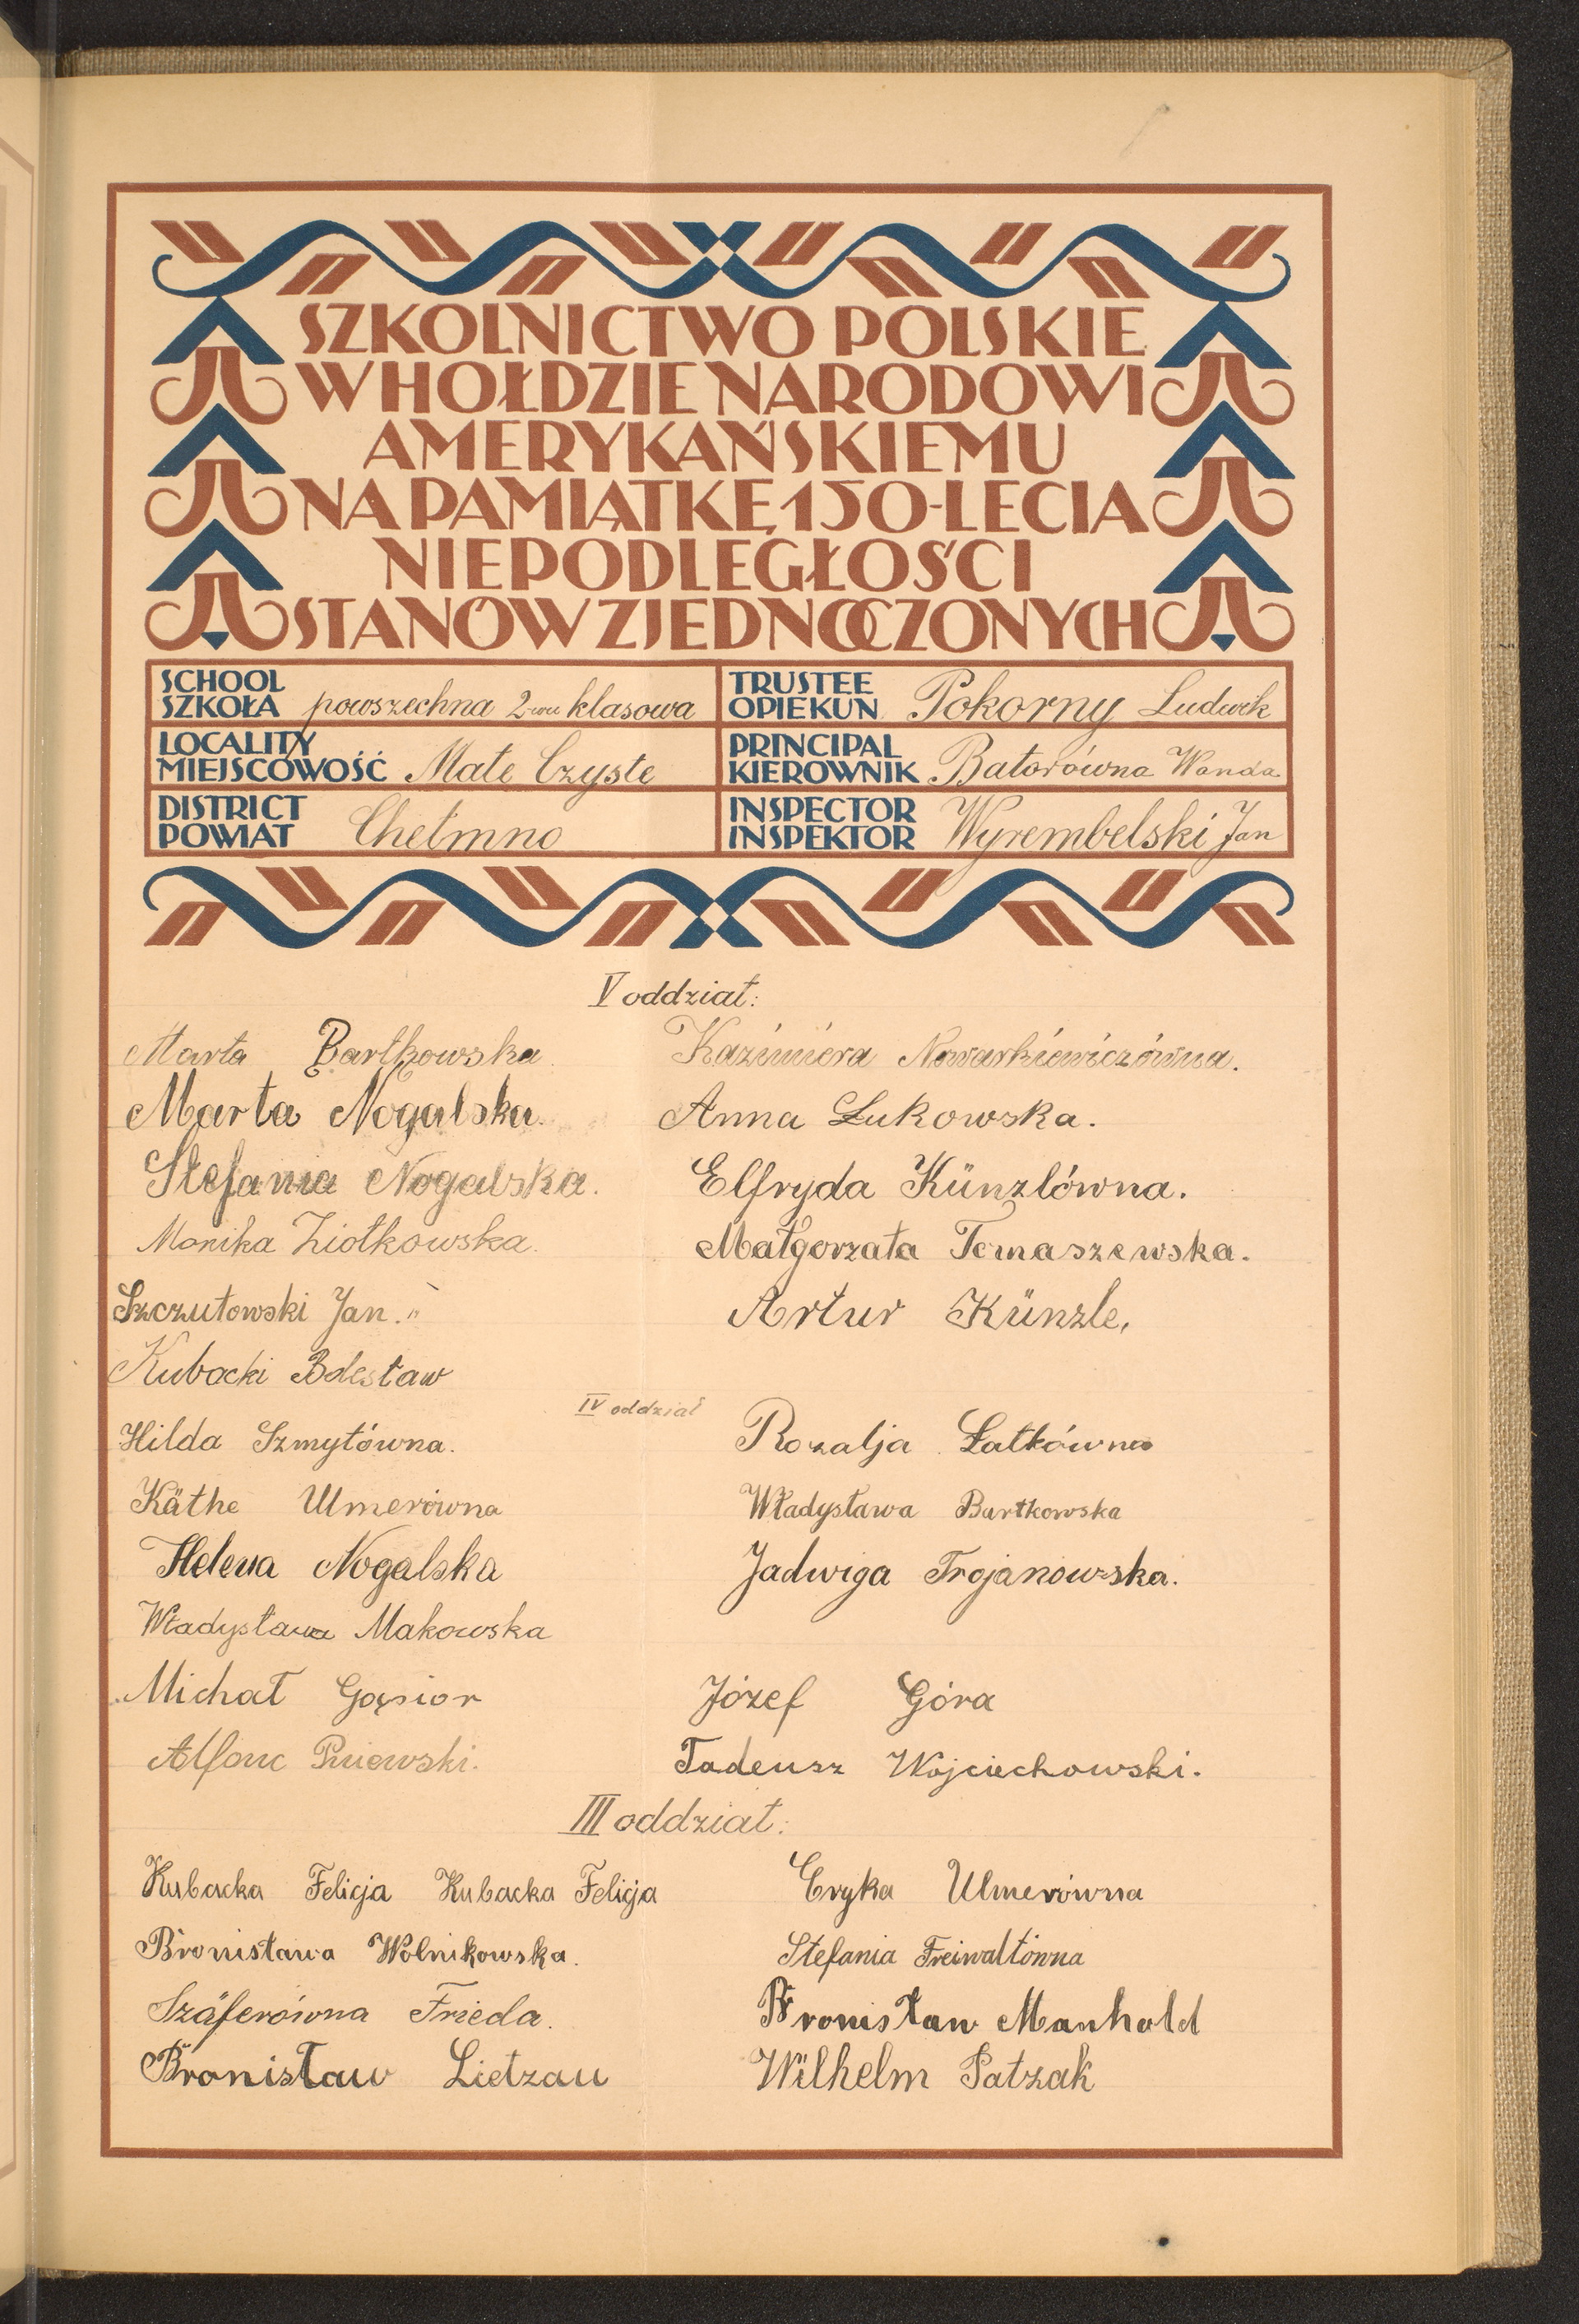 SZKOLNICTWO POLSKIE
W HOŁDZIE NARODOWI
AMERYKAŃSKIEMU
NA PAMIĄTKĘ 150-LECIA
NIEPODLEGŁOŚCI
STANÓW ZJEDNOCZONYCH
SCHOOL
SZKOŁA powszechna 2-wu klasowa
TRUSTEE
OPIEKUN Pokorny Ludwik
LOCALITY
MIEJSCOWOŚĆ Małe Czyste
PRINCIPAL
KIEROWNIK Batorówna Wanda
DISTRICT
POWIAT Chełmno
INSPECTOR
INSPEKTOR Wyrembelski Jan
V oddział:
Marta Bartkowska. Kazimiera Nowarkiewiczówna.
Marta Nogalska. Anna Łukowska.
Stefania Nogalska. Elfryda Künzlówna.
Monika Ziołkowska. Małgorzata Tomaszewska.
Szczutowski Jan. Artur Künzle.
Kubacki Bolesław
IV oddział
Hilda Szmytówna. Rozalja Łatkówna
Käthe Ulmerówna Władysława Bartkowska
Helena Nogalska Jadwiga Trojanowska.
Władysława Makowska
Michał Gąsior Józef Góra
Alfonc Pniewski. Tadeusz Wojciechowski.
III oddział:
Kubacka Felicja Kubacka Felicja Eryka Ulmerówna
Bronisława Wolnikowska. Stefania Freiwaltówna
Szäferówna Frieda. Bronisław Manhold
Bronisław Lietzau Wilhelm Patzak